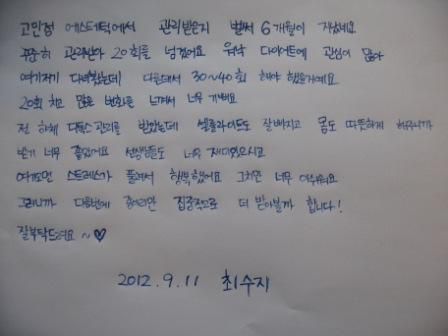 고민정 에스테틱에서 관리받은지 벌써 6개월이 지났네요
꾸준히 관리받아 20회를 넘겼어요 워낙 다이어트에 관심이 많아
여기저기 다녀봤는데 다른데서 30~40회 해야 했을거예요
20회 치고 많은 변화를 느껴서 너무 기뻐요
전 하체 디톡스 관리를 받았는데 셀룰라이트도 잘빠지고 몸도 따뜻하게 해주니까
받기 너무 좋았어요 선생님들도 너무 재미있으시고
여기오면 스트레스가 풀려서 행복했어요 그치만 너무 아쉬워요
그러니까 다음번에 종아리만 집중적으로 더 받아볼까 합니다!
잘부탁드려요 ~ ♡
2012. 9. 11 최수지